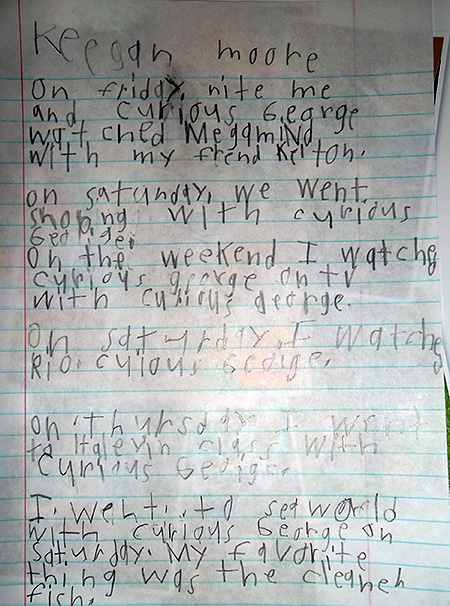 Keegan moore
On friday, nite me
and, curious George
watched Megamind
with my frend Kelton.
on saturday, we went
shoping with curious
George.
On the weekend I watche
curious george on tv
with curious george.
On saturday I watche
Rio. curious George.
on thursday I went
to class with
Curious George.
I. went. to seaworld
with curious George on
Saturday. My favorite
thing was the cleaneh
fish.